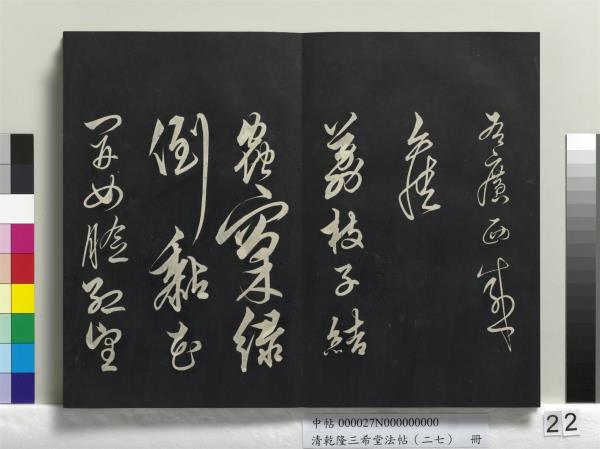 廣西
荔枝子結
蟲窠緑
倒黏花
開女臉紅望
中帖 000027N000000000
清乾隆三希堂法帖（二七） 冊
22